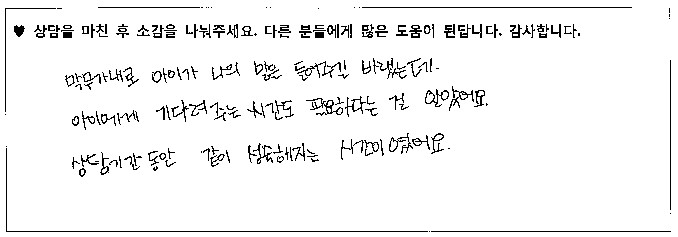 ♥ 상담을 마친 후 소감을 나눠주세요. 다른 분들에게 많은 도움이 된답니다. 감사합니다.
막무가내로 아이가 나의 말은 들어주길 바랬는데.
아이에게 기다려 주는 시간도 필요하다는 걸 알았어요.
상담기간 동안 같이 성숙해지는 시간이였어요.